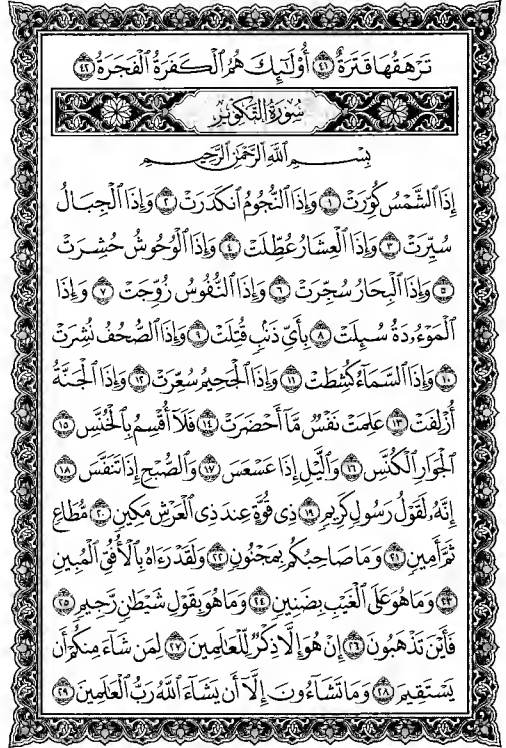 تَرْهَقُهَا قَتَرَةٌ ٤١ أُو۟لَـٰٓئِكَ هُمُ ٱلْكَفَرَةُ ٱلْفَجَرَةُ ٤٢
سُورَةُ التَّكْوِيرِ
بِسْمِ ٱللَّهِ ٱلرَّحْمَٰنِ ٱلرَّحِيمِ
إِذَا ٱلشَّمْسُ كُوِّرَتْ ١ وَإِذَا ٱلنُّجُومُ ٱنكَدَرَتْ ٢ وَإِذَا ٱلْجِبَالُ
سُيِّرَتْ ٣ وَإِذَا ٱلْعِشَارُ عُطِّلَتْ ٤ وَإِذَا ٱلْوُحُوشُ حُشِرَتْ
٥ وَإِذَا ٱلْبِحَارُ سُجِّرَتْ ٦ وَإِذَا ٱلنُّفُوسُ زُوِّجَتْ ٧ وَإِذَا
ٱلْمَوْءُۥدَةُ سُئِلَتْ ٨ بِأَىِّ ذَنۢبٍ قُتِلَتْ ٩ وَإِذَا ٱلصُّحُفُ نُشِرَتْ
١٠ وَإِذَا ٱلسَّمَآءُ كُشِطَتْ ١١ وَإِذَا ٱلْجَحِيمُ سُعِّرَتْ ١٢ وَإِذَا ٱلْجَنَّةُ
أُزْلِفَتْ ١٣ عَلِمَتْ نَفْسٌ مَّآ أَحْضَرَتْ ١٤ فَلَآ أُقْسِمُ بِٱلْخُنَّسِ ١٥
ٱلْجَوَارِ ٱلْكُنَّسِ ١٦ وَٱلَّيْلِ إِذَا عَسْعَسَ ١٧ وَٱلصُّبْحِ إِذَا تَنَفَّسَ ١٨
إِنَّهُۥ لَقَوْلُ رَسُولٍ كَرِيمٍ ١٩ ذِى قُوَّةٍ عِندَ ذِى ٱلْعَرْشِ مَكِينٍ ٢٠ مُّطَاعٍ
ثَمَّ أَمِينٍ ٢١ وَمَا صَاحِبُكُم بِمَجْنُونٍ ٢٢ وَلَقَدْ رَءَاهُ بِٱلْأُفُقِ ٱلْمُبِينِ
٢٣ وَمَا هُوَ عَلَى ٱلْغَيْبِ بِضَنِينٍ ٢٤ وَمَا هُوَ بِقَوْلِ شَيْطَٰنٍ رَّجِيمٍ ٢٥
فَأَيْنَ تَذْهَبُونَ ٢٦ إِنْ هُوَ إِلَّا ذِكْرٌ لِّلْعَٰلَمِينَ ٢٧ لِمَن شَآءَ مِنكُمْ أَن
يَسْتَقِيمَ ٢٨ وَمَا تَشَآءُونَ إِلَّآ أَن يَشَآءَ ٱللَّهُ رَبُّ ٱلْعَٰلَمِينَ ٢٩